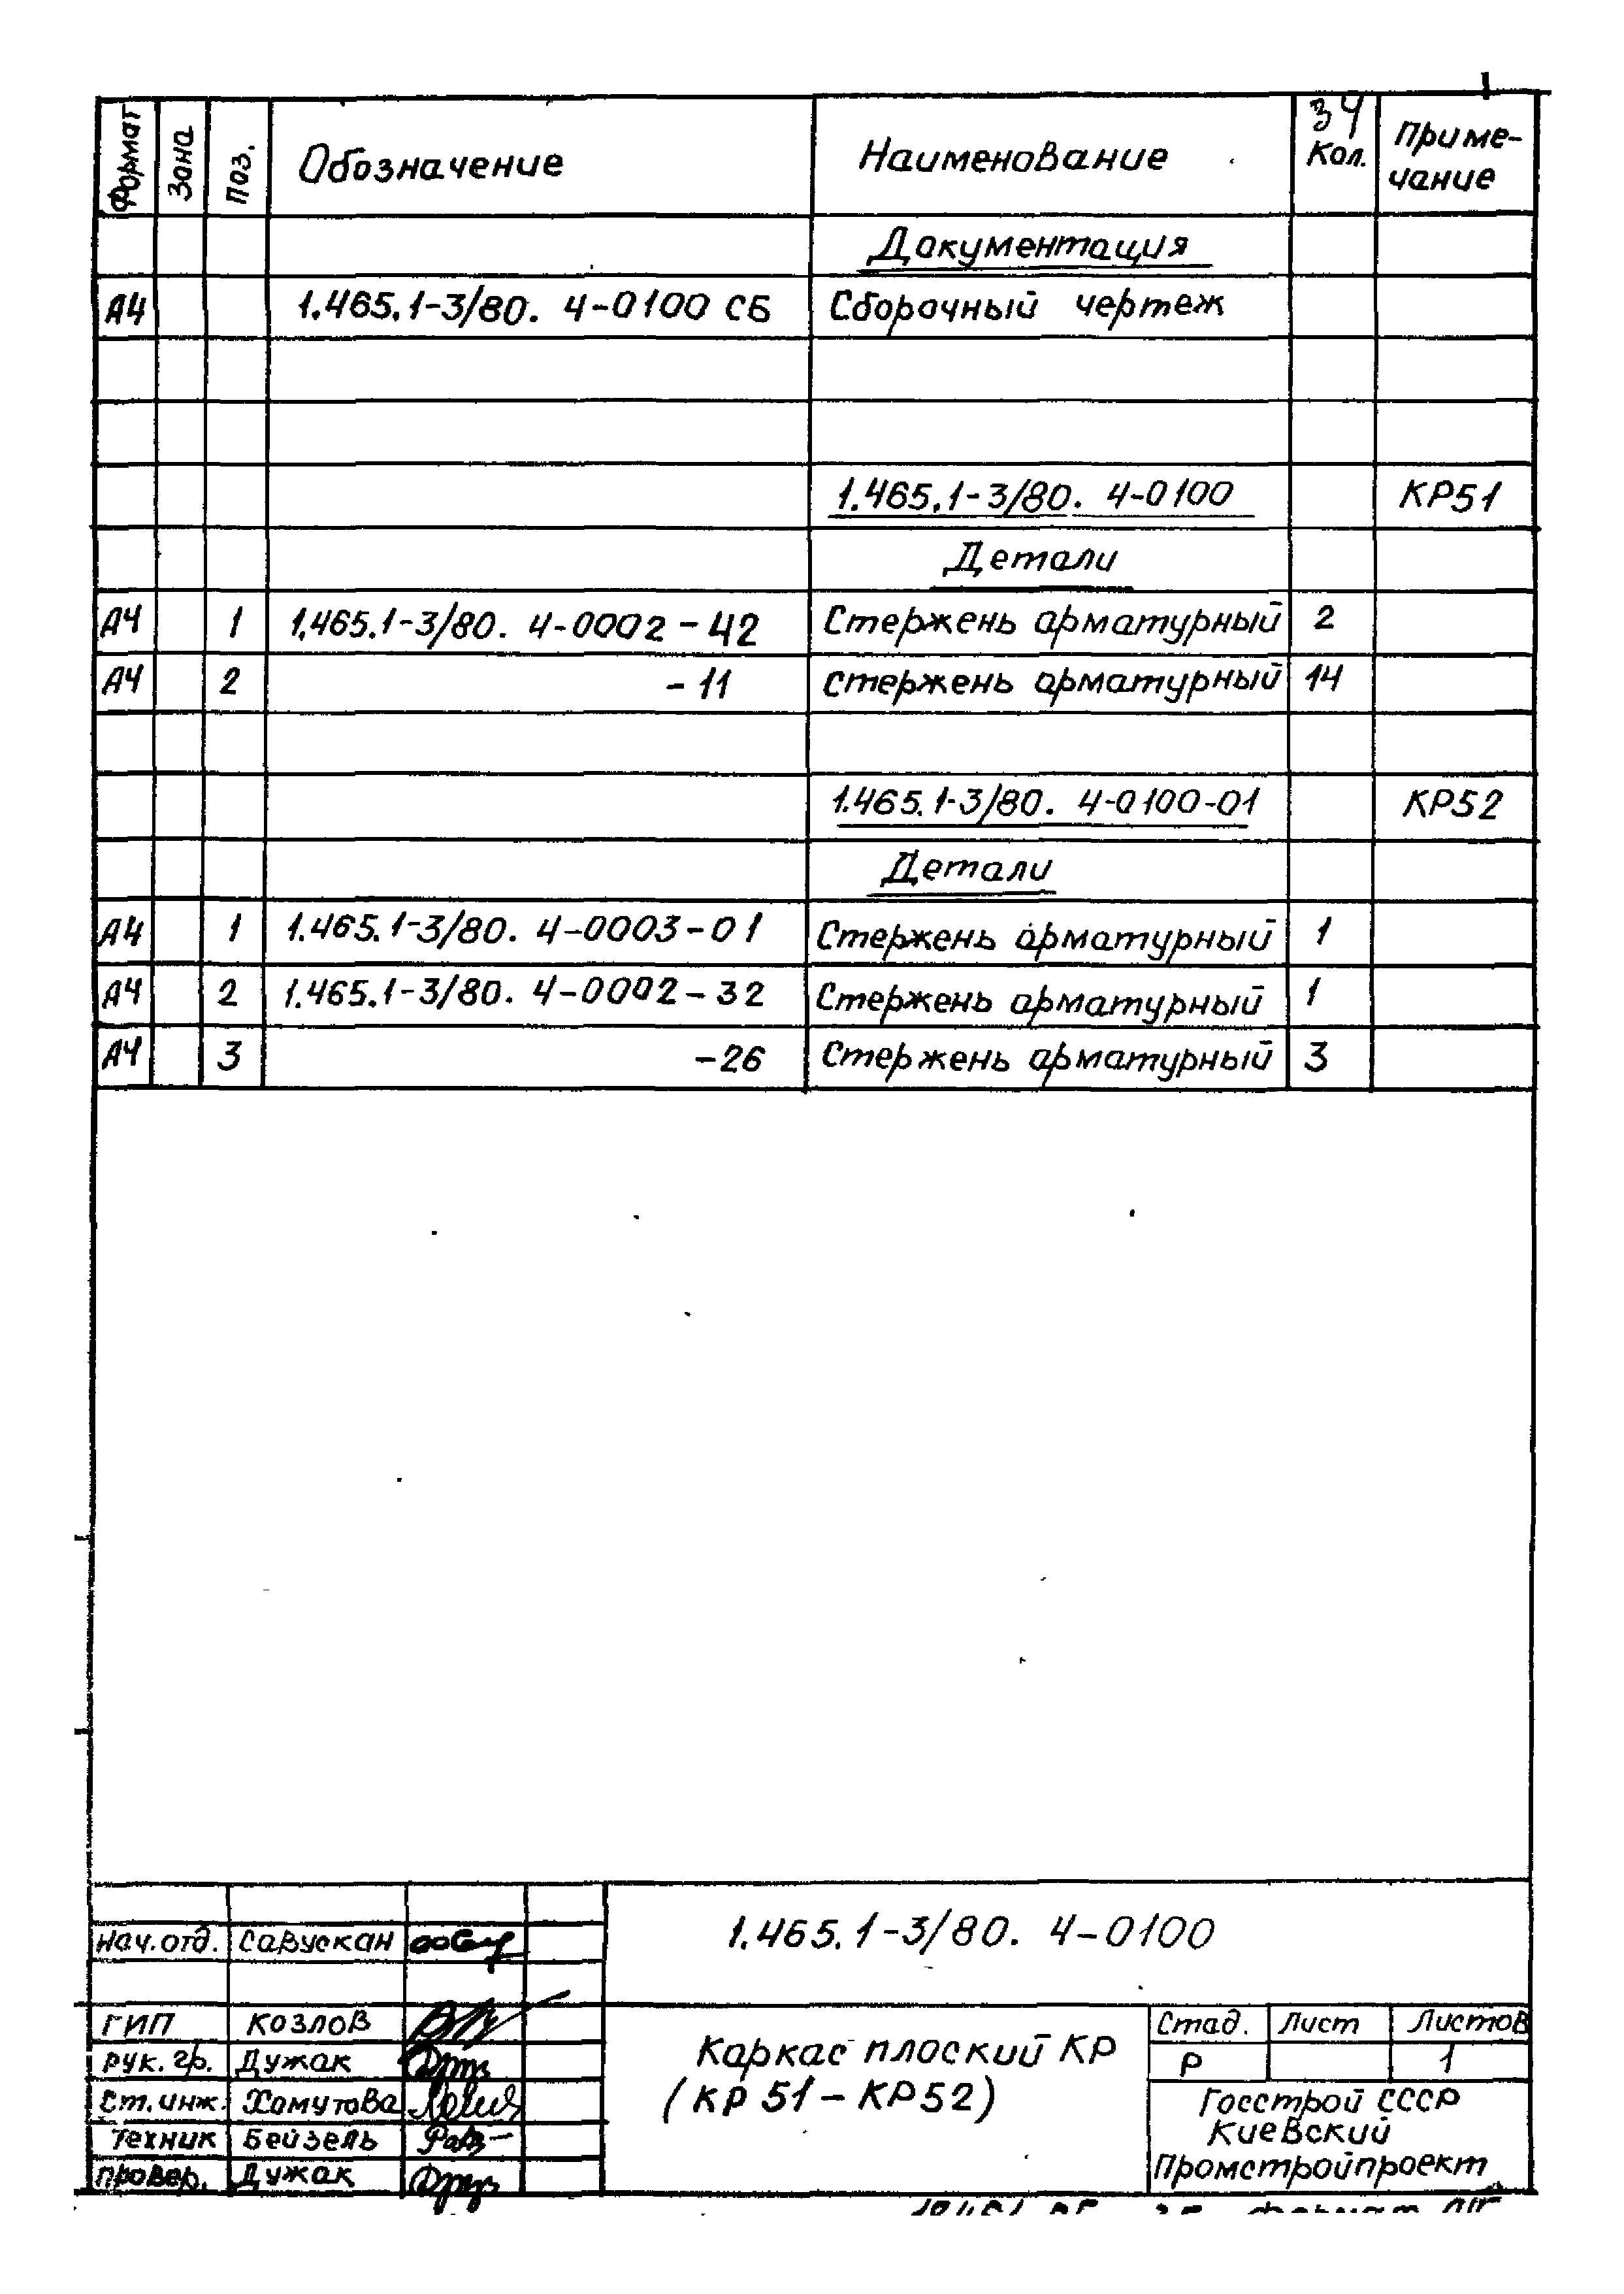 34
Формат Зона Поз. Обозначение Наименование Кол. Приме-
чание
Документация
А4 1.465.1-3/80. 4-0100 СБ Сборочный чертеж
1.465.1-3/80. 4-0100 КР51
Детали
А4 1 1.465.1-3/80. 4-0002-42 Стержень арматурный 2
А4 2 -11 Стержень арматурный 14
1.465.1-3/80. 4-0100-01 КР52
Детали
А4 1 1.465.1-3/80. 4-0003-01 Стержень арматурный 1
А4 2 1.465.1-3/80. 4-0002-32 Стержень арматурный 1
А4 3 -26 Стержень арматурный 3
1.465.1-3/80. 4-0100
Нач.отд. Савускан
ГИП Козлов
Рук. гр. Дужак
Ст.инж. Хомутова
Техник Бейзель
Провер. Дужак
Каркас плоский КР
(КР51-КР52)
Стад. Лист Листов
Р 1
Госстрой СССР
Киевский
Промстройпроект